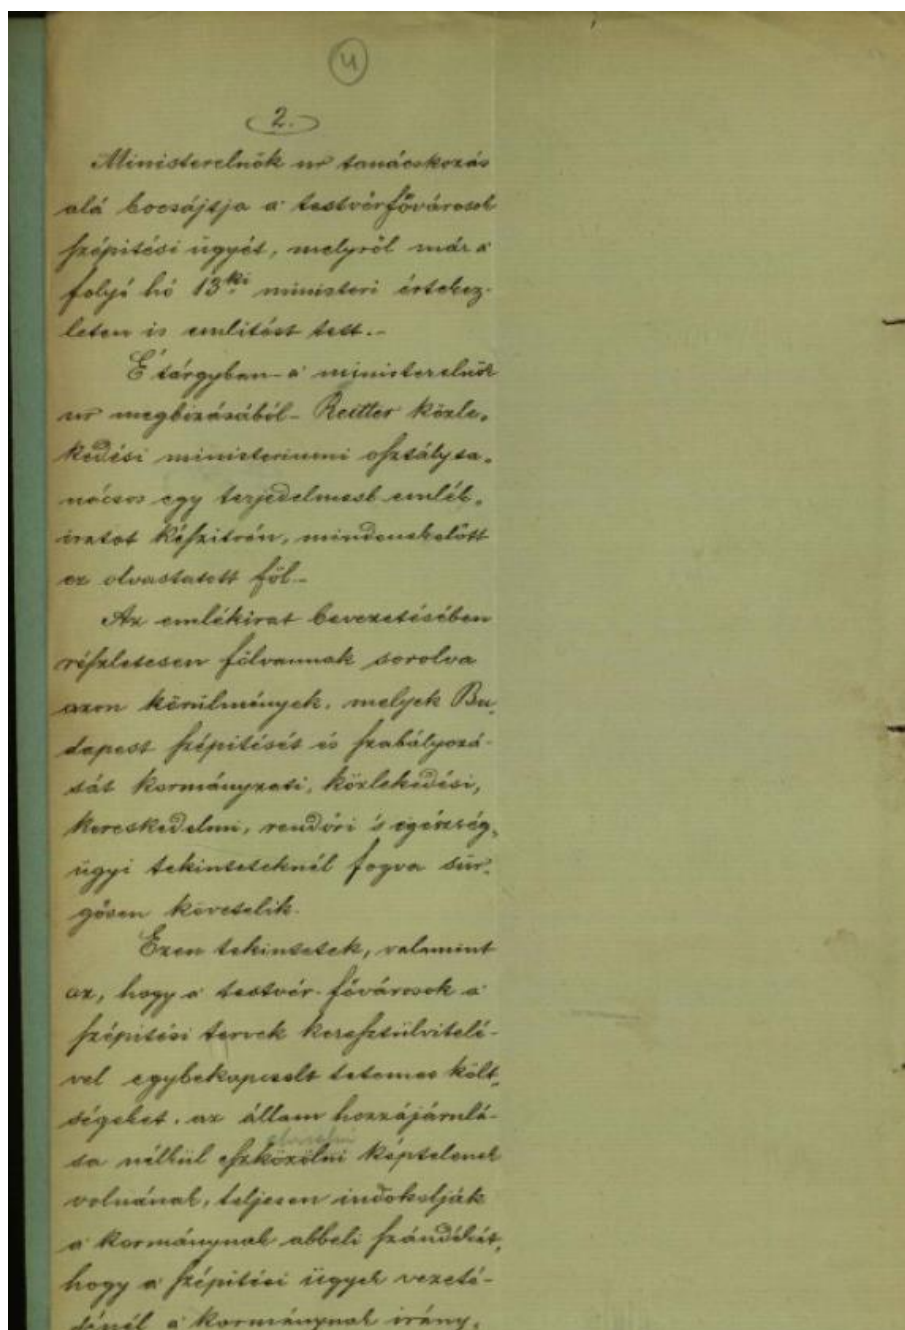 4
2.
Ministerelnök ur tanácskozás
alá bocsájtja a testvérfővárosok
szépitési ügyét, melyről már a
folyó hó 13ki ministeri értekez-
leten is emlitést tett.-
E tárgyban - a ministerelnök
ur megbizásából - Reitter közle-
kedési ministeriumi osztályta-
nácsos egy terjedelmesb emlék-
iratot készitvén, mindenekelőtt
ez olvastatott föl.-
Az emlékirat bevezetésében
részletesen fölvannak sorolva
azon körülmények, melyek Bu-
dapest szépitését és szabályozá-
sát kormányzati, közlekedési,
kereskedelmi, rendőri s egészség-
ügyi tekinteteknél fogva sür-
gősen követelik.
Ezen tekintetek, valamint
az, hogy a testvér-fővárosok a
szépitési tervek keresztülvitelé-
vel egybekapcsolt tetemes költ-
ségeket, az állam hozzájárulá-
sa nélkül eszközölni képtelenek
volnának, teljesen indokolják
a kormánynak abbeli szándékát,
hogy a szépitési ügyek vezeté-
sénél a kormánynak irány-